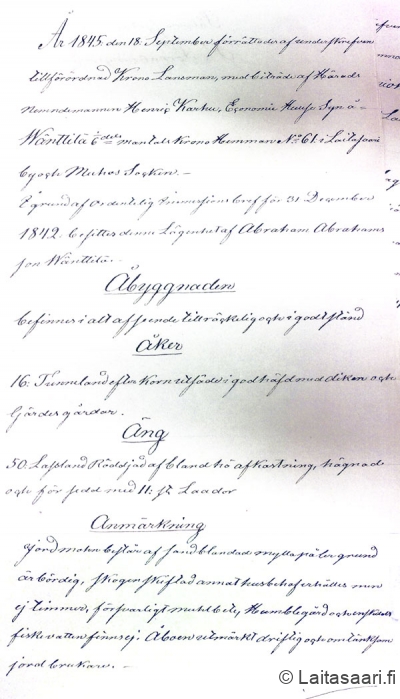 År 1845. den 18. September förrättades af undertecknad
tillförordnad Krono Länsman, med biträde af Härads
Nemndemannen Henric Karhu, Economie Huus Syn å
Wänttilä mantals Krono Hemman No 61. i Laitasaari
by och Muhos Socken. –
På grund af ordentelig Immissions bref för 31 December
1842. besittes denna Lägenhet af Abraham Abrahams
son Wänttilä. –
Åbyggnaden
befinnes i alt afseende tillräckelig och i godt stånd
Åker
16: Tunneland efter Korn utsäde i god häfd med diken och
Gärdes gårdar.
Äng
50. Lassland Röddjad af bland hö afkastning, hägnad
och försedd med 11: st Laador
Anmärkning
Jordmohn består af sandblandad mylla på ler grund
är bördig, skogen skiftad annat husbehof erhålles men
ej timmer, försvarligt muhlbete, Humblegård och enskildt
fiskevatten finnes ej. Åboen utmärkt driftig och omtänksam
jord brukare. –
© Laitasaari.fi